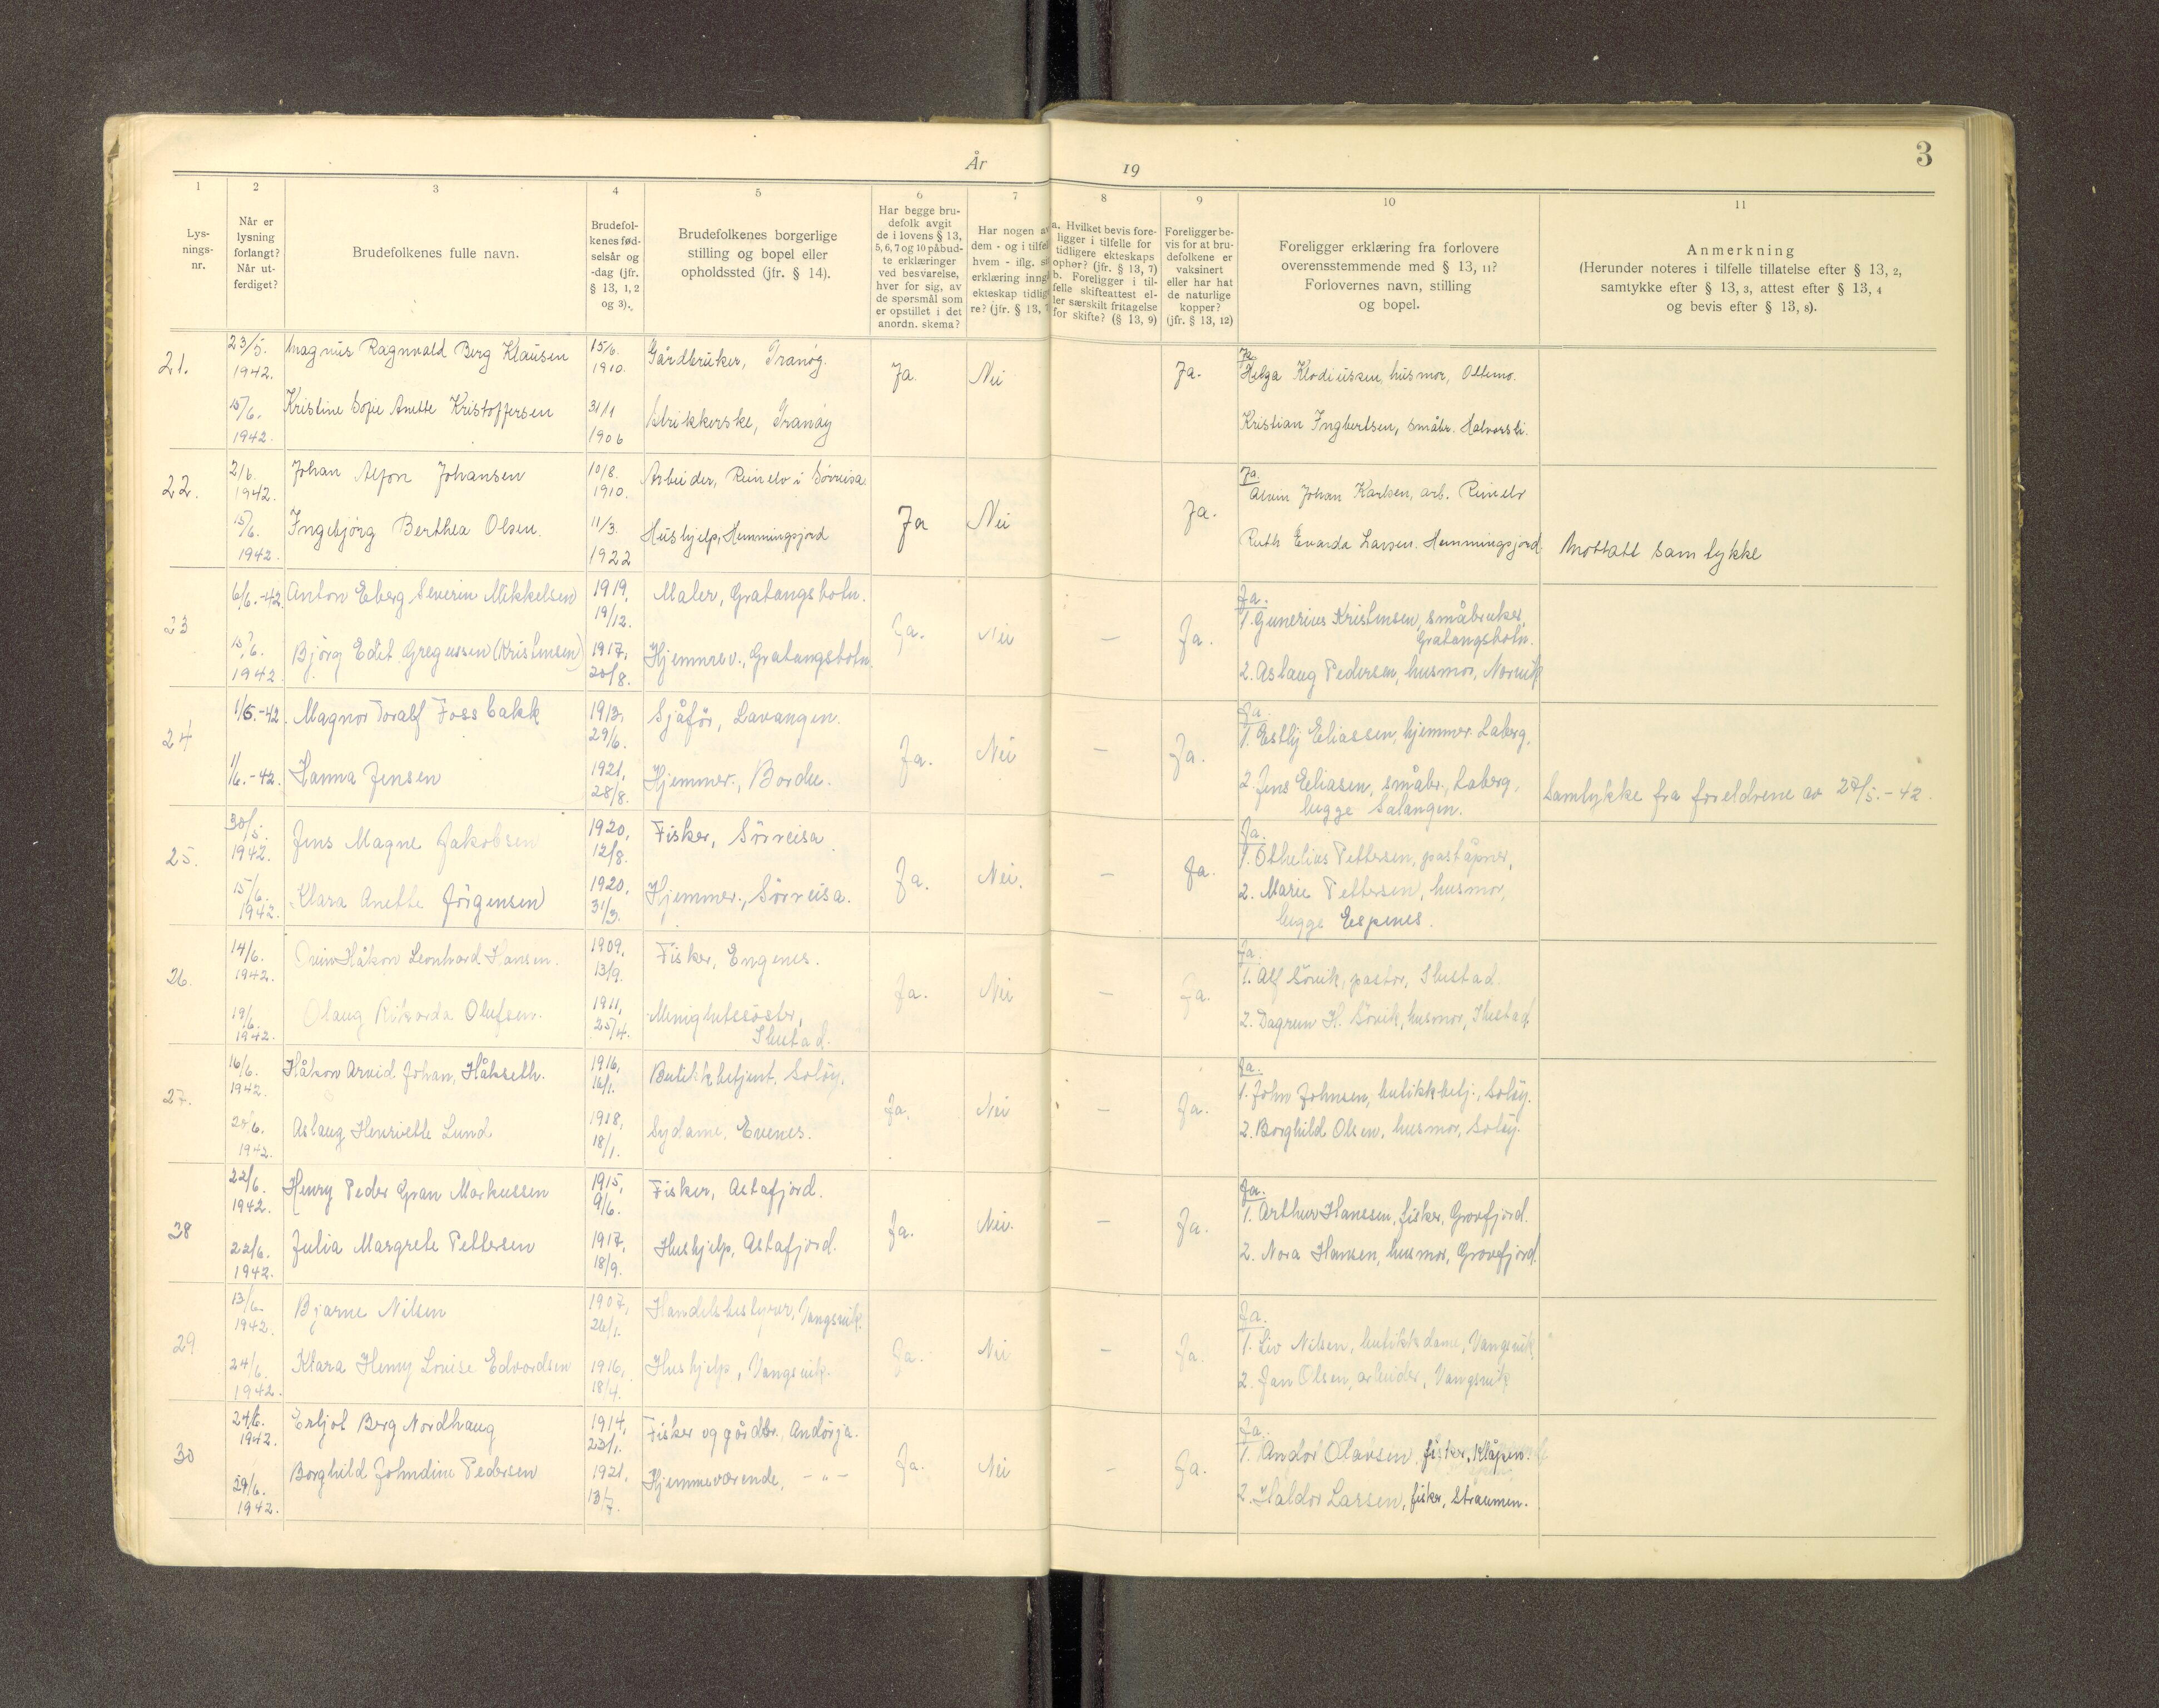 År 19
3
1
2
3
4
5
6
7
8
9
10
11
Lys-
nings-
nr.
Når er
lysning
forlangt?
Når ut-
ferdiget?
Brudefolkenes fulle navn.
Brudefol-
kenes fød-
selsår og
-dag (jfr.
§ 13, 1, 2
og 3).
Brudefolkenes borgerlige
stilling og bopel eller
opholdssted (jfr. § 14).
Har begge bru-
defolk avgit
de i lovens § 13,
5, 6, 7 og 10 påbud-
te erklæringer
ved besvarelse,
hver for sig, av
de spørsmål som
er opstillet i det
anordn. skema?
Har nogen a
dem - og i tilfel
hvem - iflg. s
erklæring inng
ekteskap tidlig
re? (jfr. § 13, 7
a. Hvilket bevis fore-
ligger i tilfelle for
tidligere ekteskaps
ophør? (jfr. § 13, 7)
b. Foreligger i til-
felle skifteattest el-
ler særskilt fritagelse
for skifte? (§ 13, 9)
Foreligger be-
vis for at bru-
defolkene er
vaksinert
eller har hat
de naturlige
kopper?
(jfr. § 13, 12)
Foreligger erklæring fra forlovere
overensstemmende med § 13, 11?
Forlovernes navn, stilling
og bopel.
Anmerkning
(Herunder noteres i tilfelle tillatelse efter § 13, 2,
samtykke efter § 13, 3, attest efter § 13, 4
og bevis efter § 13, 8).
21.
23/5.
1942.
Magnus Ragnvald Berg Klausen
15/6.
1910.
Gårdbruker, Tranøy.
Ja.
Nei
Ja.
Ja
Helga Klodiussen, husmor, Oltemo.
15/6.
1942.
Kristine Sofie Anette Kristoffersen
31/1
1906
Strikkerske, Tranøy
Kristian Ingbertsen, småbr. Halvorsli.
22.
2/6.
1942.
Johan Alfon Johansen
10/8.
1910.
Arbeider, Reinelv i Sørreisa
Ja
Nei
Ja.
Ja
Alvin Johan Karlsen, arb. Reinelv
15/6.
1942.
Ingebjørg Berthea Olsen.
11/3.
1922
Hushjelp, Hemmingsjord
Ruth Evarda Larsen. Hemmingsjord.
Mottatt samtykke
23
6/6.-42.
Anton Eberg Severin Mikkelsen
1919,
19/12.
Maler, Gratangsbotn.
Ja.
Nei
—
Ja.
Ja.
1. Gunerius Kristensen, småbruker,
Gratangsbotn.
15/6.
1942
Bjørg Edit Gregussen (Kristensen)
1917,
20/8.
Hjemmev., Gratangsbotn.
2. Aslaug Pedersen, husmor, Narvik
24
1/6.-42.
Magnor Toralf Fossbakk
1913,
29/6.
Sjåfør, Lavangen.
Ja.
Nei
—
Ja.
Ja.
1. Eslij Eliassen, hjemmev. Laberg,
1/6.-42.
Hanna Jensen
1921,
28/8.
Hjemmev., Bardu.
2. Jens Eliasen, småbr., Laberg,
begge Salangen.
Samtykke fra foreldrene av 27/5.-42.
25.
30/5.
1942.
Jens Magne Jakobsen
1920,
12/8.
Fisker, Sørreisa.
Ja.
Nei.
—
Ja.
Ja.
1. Othelius Pettersen, poståpner,
15/6.
1942.
Klara Anette Jørgensen
1920,
31/3.
Hjemmev., Sørreisa.
2. Marie Pettersen, husmor,
begge Espenes.
26.
14/6.
1942.
Håkon Leonhard Hansen.
1909,
13/9.
Fisker, Engenes.
Ja.
Nei
—
Ja.
Ja.
1. Alf Sövik, pastor, Ibestad.
19/6.
1942.
Olaug Rikarda Olufsen.
1911,
25/4.
Menighetssøster,
Ibestad.
2. Dagrun H. Sövik, husmor, Ibestad.
27.
16/6.
1942.
Håkon Arvid Johan Håkseth.
1916,
16/1.
Butikkbetjent, Soløy.
Ja.
Nei
—
Ja.
Ja.
1. John Johnsen, butikkbetj., Soløy.
20/6.
1942.
Aslaug Henriette Lund
1918,
18/1.
Sydame, Evenes.
2. Borghild Olsen, husmor, Soløy.
28
22/6.
1942.
Henry Peder Gran Markussen
1915,
9/6.
Fisker, Astafjord.
Ja.
Nei.
—
Ja.
Ja.
1. Arthur Hanssen, fisker, Grovfjord.
22/6.
1942.
Julia Margrete Pettersen
1917,
18/9.
Hushjelp, Astafjord.
2. Nora Hansen, husmor, Grovfjord.
29
13/6.
1942.
Bjarne Nilsen
1907,
26/1.
Handelsbestyrer, Vangsvik.
Ja.
Nei
—
Ja.
Ja.
1. Liv Nilsen, butikkdame, Vangsvik,
24/6.
1942.
Klara Henny Louise Edvardsen
1916,
18/4.
Hushjelp, Vangsvik.
2. Jan Olsen, arbeider, Vangsvik
30
24/6.
1942.
Erljot Berg Nordhaug
1914,
23/1.
Fisker og gårdbr., Andørja.
Ja.
Nei
—
Ja.
Ja.
1. Andor Olavsen, fisker, Klåpen.
29/6.
1942.
Borghild Johndine Pedersen
1921,
13/7.
Hjemmeværende, -"-
2. Haldor Larsen, fisker, Straumen.